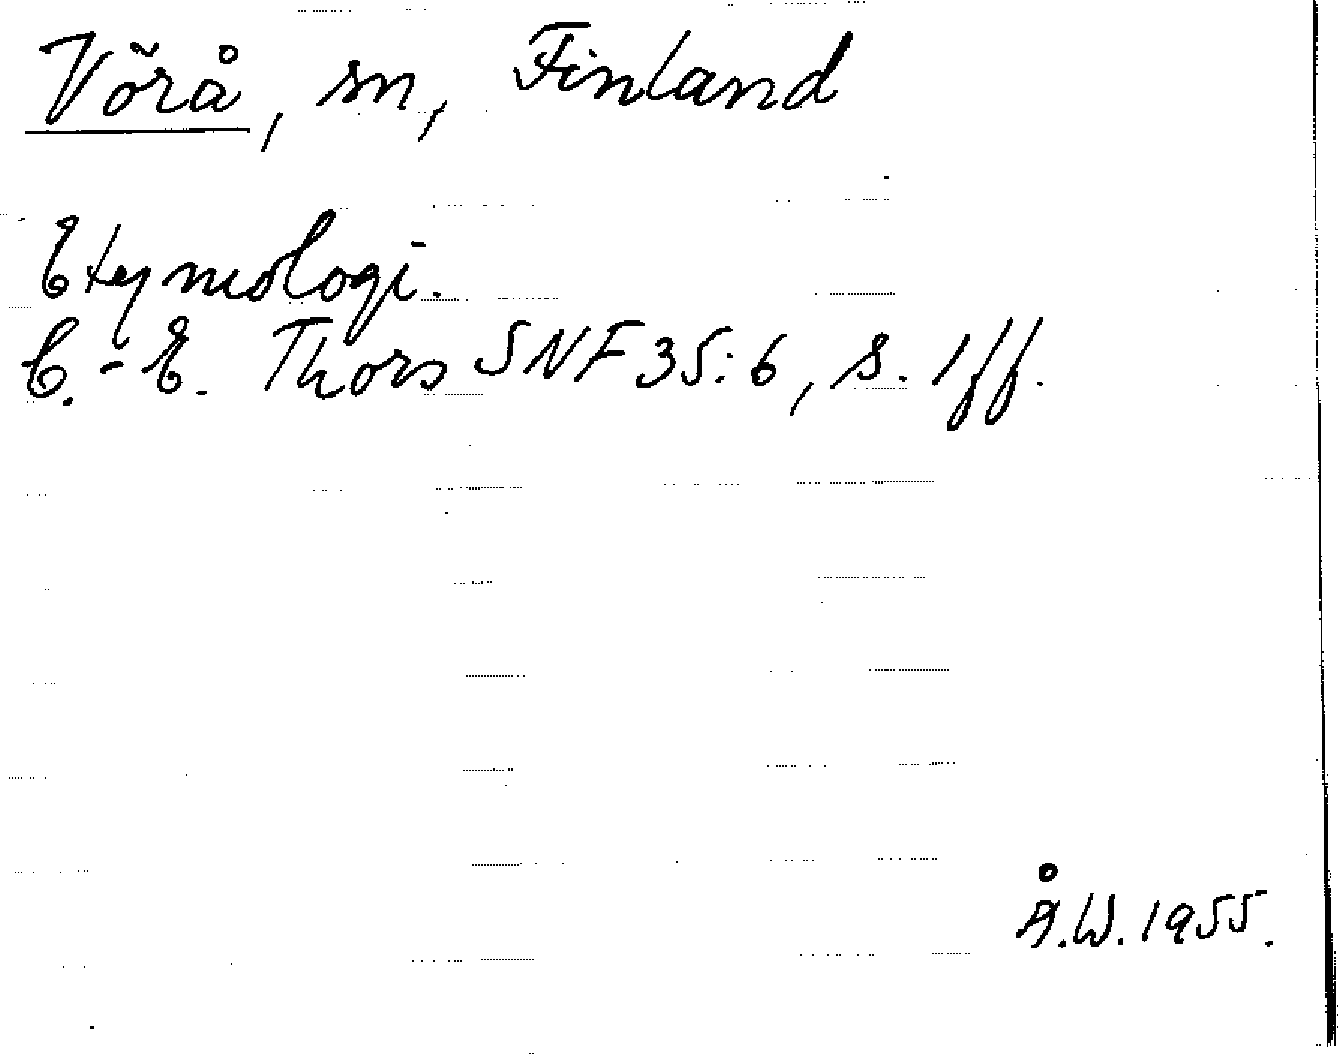 Vörå, sn, Finland
Etymologi.
C.-E. Thors SNF 35:6, s. 1ff.
Å.W. 1955.